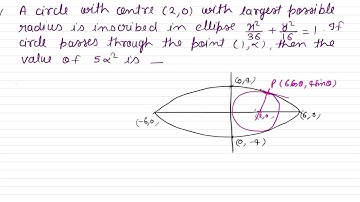 A circle with centre (2,0) with largest possible
radius is inscribed in ellipse x²/36 + y²/16 = 1. If
circle passes through the point (1,α), then the
value of 5α² is _
(0,4)
P(6cosθ, 4sinθ)
(-6,0)
(2,0)
(6,0)
(0,-4)